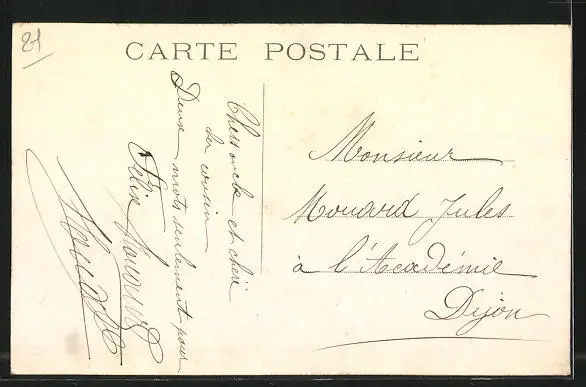 21
CARTE POSTALE
Cher oncle et chère
des cousin
Deux mots seulement pour
Félix Mouard
Monsieur
Mouard Jules
à l'Académie
Dijon